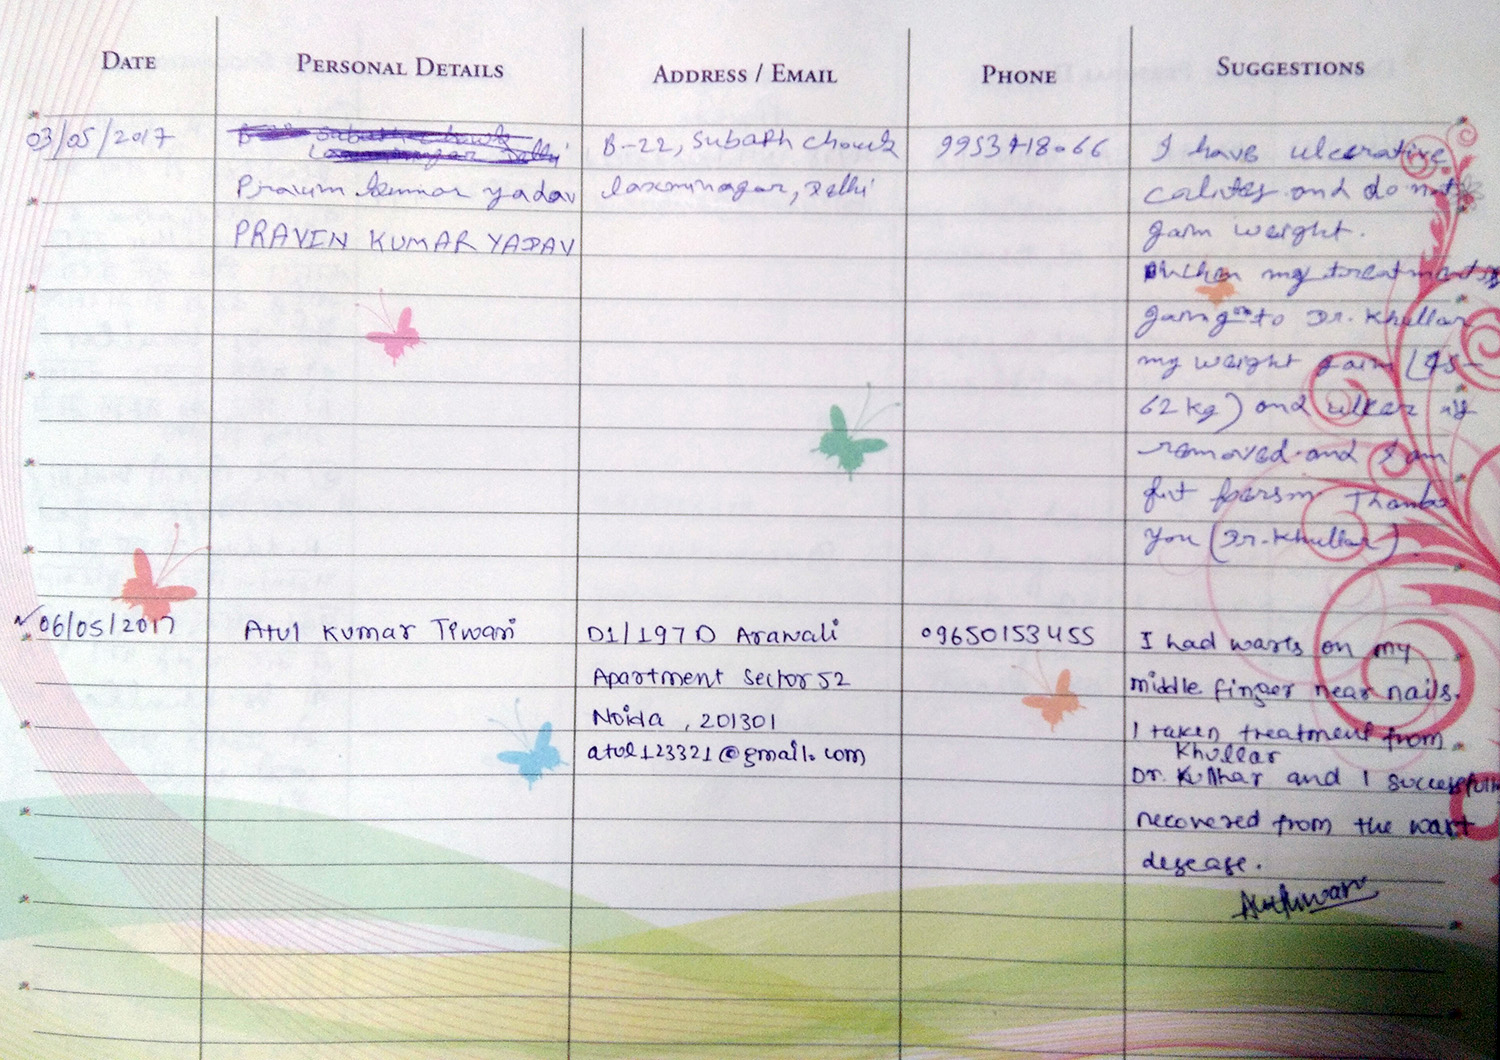 DATE PERSONAL DETAILS ADDRESS / EMAIL PHONE SUGGESTIONS
03/05/2017
Pravin Kumar Yadav
PRAVEN KUMAR YADAV
B-22, Subath Chowk
laxminagar, Delhi
I have ulcerative
and do not
gain weight.
When my treatment
to Dr. Khullar
my weight gain (45-
62 kg) and ulker
removed and I am
Thanks
you (Dr. Khullar).
06/05/2017
Atul Kumar Tiwari
D1/197D Arawali
Apartment Sector 52
Noida, 201301
atul123321@gmail.com
09650153455
I had warts on my
middle finger near nails.
I taken treatment from
Khullar
Dr. Kullhar and I successfull
recovered from the wart
desease.